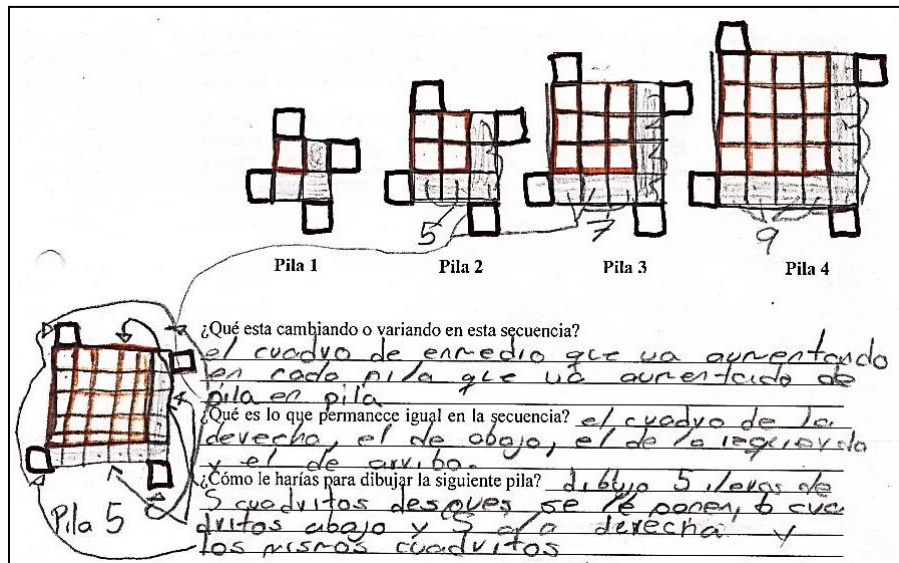 5
7
9
Pila 1
Pila 2
Pila 3
Pila 4
¿Qué esta cambiando o variando en esta secuencia?
el cuadro de enmedio que va aumentando
en cada pila que va aumentado de
pila en pila
¿Qué es lo que permanece igual en la secuencia? el cuadro de la
derecha, el de abajo, el de la izquierda
y el de arriba.
¿Cómo le harías para dibujar la siguiente pila? dibujo 5 ileras de
5 cuadritos despues se le ponen, 6 cua
dritos abajo y 5 a la derecha y
los mismos cuadritos
Pila 5